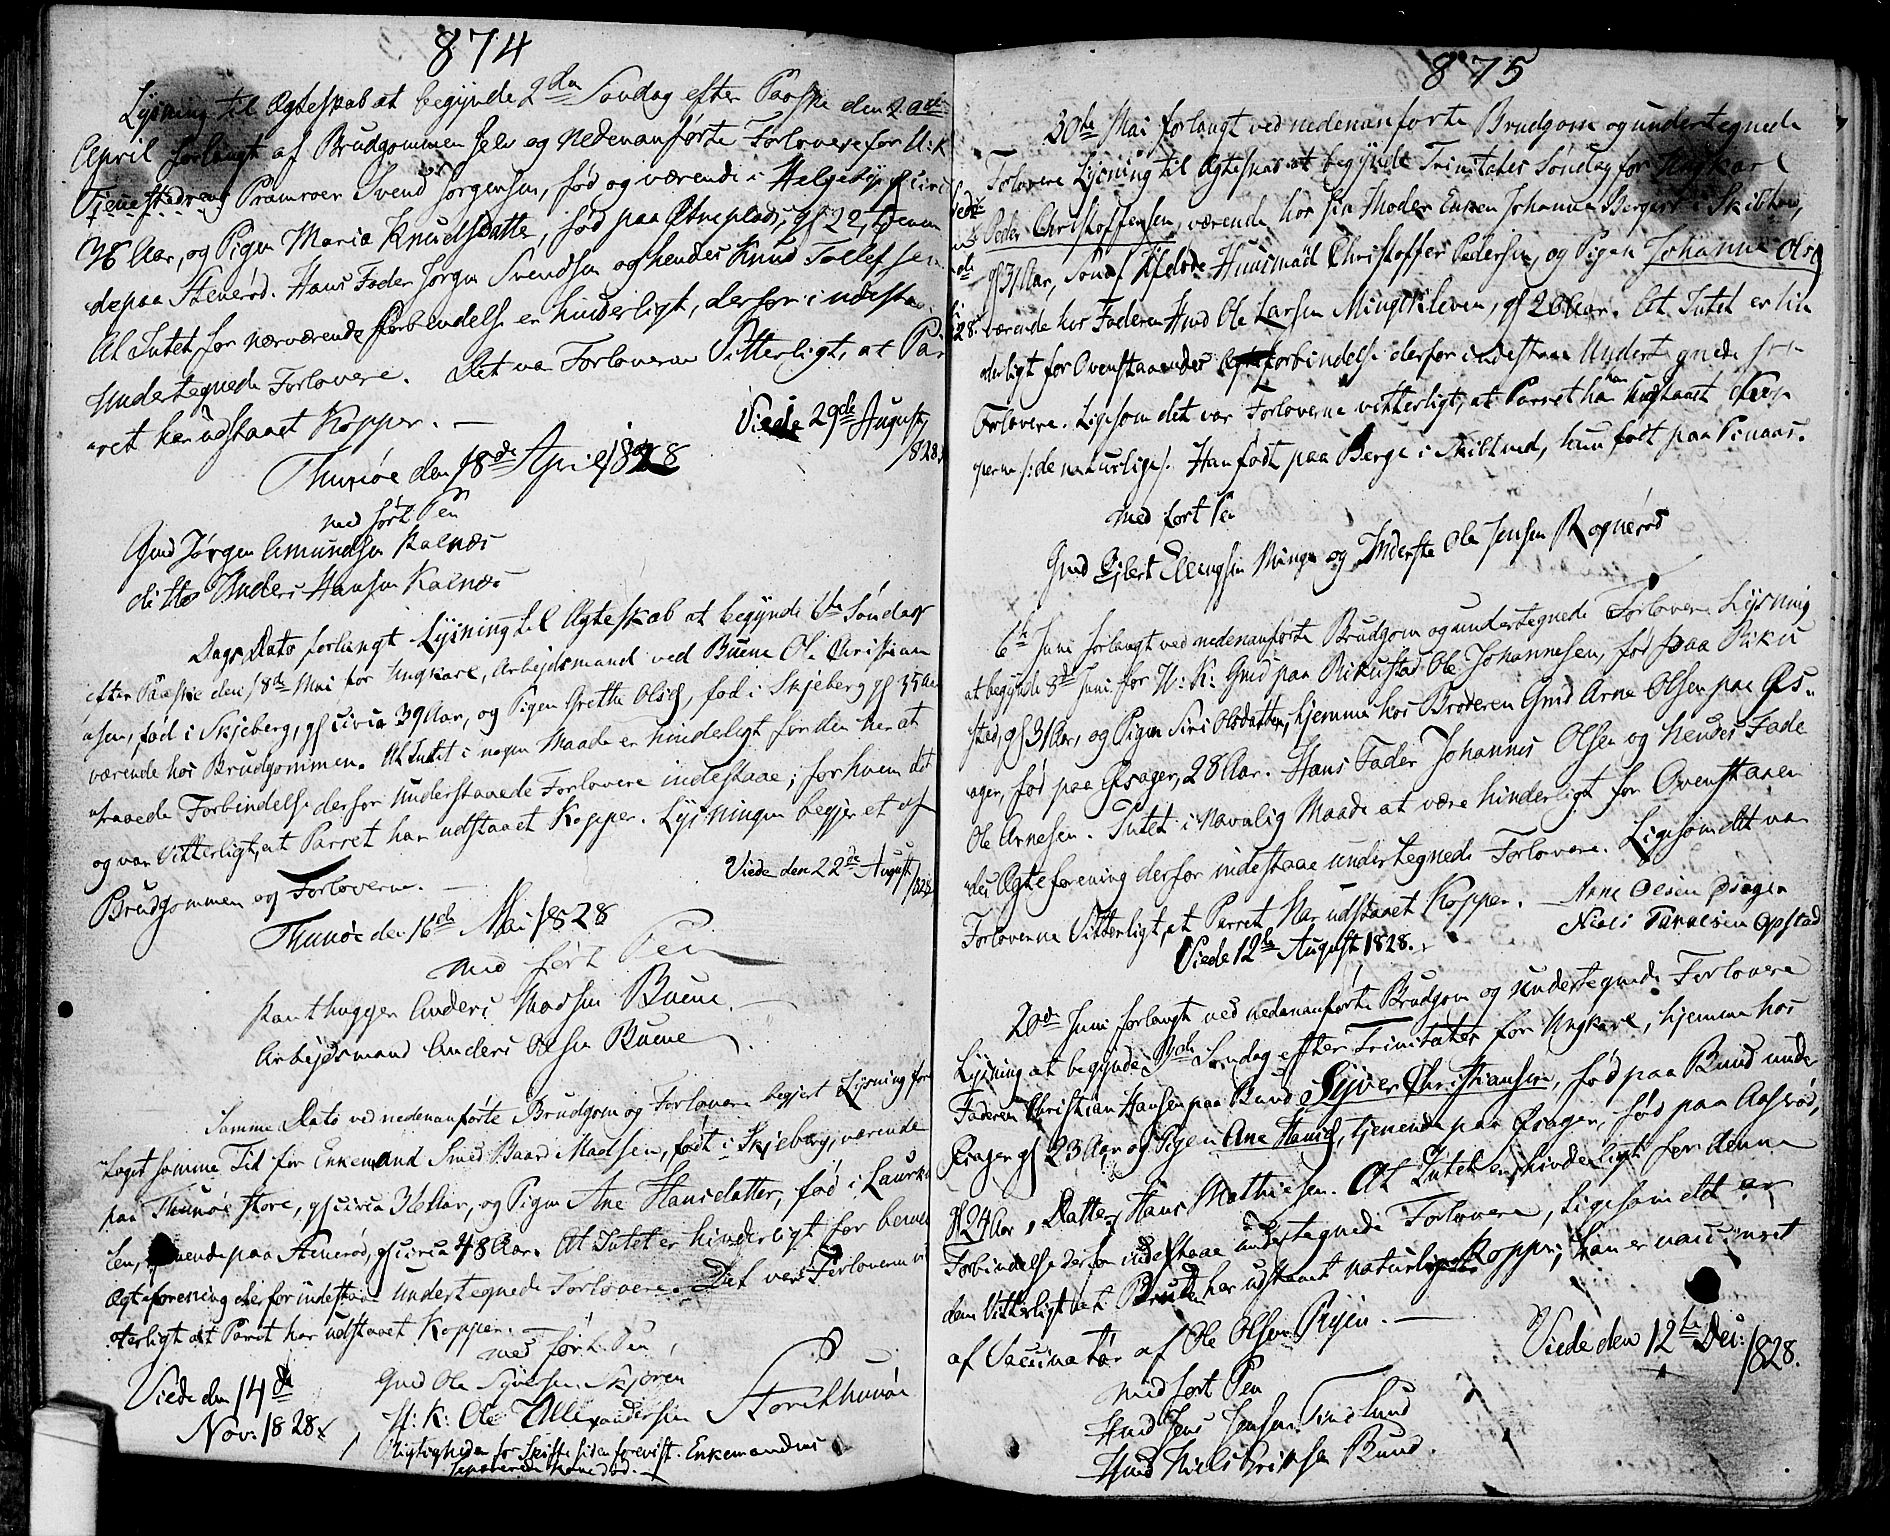 874
Lysning til Ægteskab at begynde 2den Søndag efter Paaske den 20de
April forlangt af Brudgommen selv og nedenanførte Forlovere for U: K
Tjenestedreng Pramroer Svend Jørgensen, fød og værende i Helgebye gl circa
36 Aar, og Pigen Maria Knudsdatter, fød paa Ætneplads, gl 22, tjenen
de paa Stenerød. Hans Fader Jørgen Svendsen og hendes Knud Tollefsen
At Intet for nærværende Forbindelse er hinderligt, derfor indestaae
Undertegnede Forlovere. Det var Forloverne Vitterligt, at Par
ret har udstaaet Kopper. —
Viede 29de August
1828.
Thunøe den 18de April 1828
med ført Pen
Gmd Jørgen Amundsen Kalnæs
ditto Anders Hansen Kalnæs
Dags Dato forlangt Lysning til Ægteskab at begynde 6te Søndag
efter Paaske den 18de Mai for Ungkarl, Arbejdsmand ved Buene Ole Christian
sen, fød i Skjeberg, gl circa 39 Aar, og Pigen Grethe Olsd, fød i Skjeberg gl 35 Aar
værende hos Brudgommen. At Intet i nogen Maade er hinderligt for den her at
traaede Forbindelse derfor Understaaede Forlovere indestaae; for hvem det
og var Vitterligt, at Parret har udstaaet Kopper. Lysningen begjeret af
Brudgommen og Forloverne. —
Viede den 22de August
1828
Thunøe den 16de Mai 1828
med ført Pen
Kanthugger Anders Madsen Buene. —
Arbejdsmand Anders Olsen Buene
Samme Dato ved nedenanførte Brudgom og Forlovere begjert Lysning for
taget samme Tid for Enkemand Smed Baard Madsen, født i Skjeberg, værende
paa Thunøe store, gl circa 36 Aar, og Pigen Ane Hansdatter, fød i Laurko
len, tjenende paa Stenerød, gl circa 48 Aar. At Intet er hinderligt for bemel
Ægteforening derfor indestaae undertegnede Forlovere. Det var Forloverne vi
tterligt at Parret har udstaaet Kopper. —
med ført Pen
Viede den 14de
Nov: 1828
Gmd Ole Syversen Skjøren
H: K: Ole Allexandersen Storethunøe
Rigtigheden for Skifte siden forevist. Enkemandens
Kone død. —
875
30te Mai forlangt ved nedenanførte Brudgom og undertegnede
Forlovere Lysning til Ægteskab at begynde Trinitatis Søndag for Ungkarl
Peder Christoffersen, værende hos sin Moder Enken Johanna Berger i Skibtvedt,
gl 31 Aar, Søn af Afdøde Huusmand Christoffer Pedersen, og Pigen Johanne Olsd
værende hos Faderen Hmd Ole Larsen Mingekleven, gl 26 Aar. At Intet er hin
derligt for Ovenstaaendes Ægteforbindelse derfor indestaae Undertegnede som
Forlovere. Ligesom det var Forloverne vitterligt, at Parret har udstaaet Kop
perne /: de naturlige :/. Han født paa Berge i Skibtved, hun født paa Pinaas.
med ført Pen
Gmd Ejlert Ellingsen Minge og Inderste Ole Jensen Rognerød
6te Juni forlangt ved nedenanførte Brudgom og undertegnede Forlovere Lysning
at begynde 8de Juni for U: K: Gmd paa Rikustad Ole Johannesen, fød paa Riku
stad, gl 31 Aar, og Pigen Siri Olsdatter, hjemme hos Broderen Gmd Arne Olsen paa Øs
ager, fød paa Øsager, 28 Aar. Hans Fader Johannes Olsen og hendes Fader
Ole Arnesen. Intet i navnlig Maade at være hinderligt for Ovenstaaen
des Ægteforening derfor indestaae undertegnede Forlovere. Ligesom det var
Forloverne Vitterligt, at Parret har udstaaet Kopper. —
Arne Olsen Øsager
Niels Opstad
Viede 12te August 1828.
20de Juni forlangt ved nedenanførte Brudgom og undertegnede Forlovere
Lysning at begynde 3de Søndag efter Trinitatis for Ungkarl, hjemme hos
Faderen Christian Hansen paa Bund Syver Christiansen, fød paa Bund under
Øsager gl 23 Aar og Pigen Ane Hansd, tjenende paa Øsager, fød paa Aaserød,
gl 24 Aar, Datter af Hans Mathiesen. At Intet er hinderligt for denne
Forbindelse derfor indestaae undertegnede Forlovere, ligesom det er
dem Vitterligt at Bruden har udstaaet naturlige Kopper; han er vaccineret
af Vaccinatør af Ole Olsen Ryen. —
Viede den 12te Dec:
1828.
med ført Pen
Hmd Jens Jensen Tinglund
Hmd Niels Eriksen Bund.